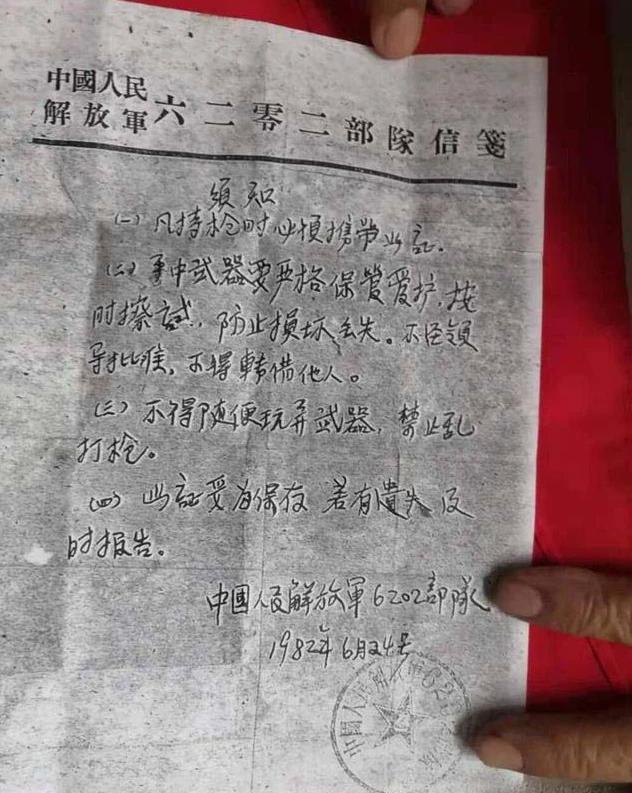 中國人民
解放軍六二零二部隊信箋
須知
(一)凡持枪时必須携带此証.
(二)手中武器要严格保管爱护,按
时擦試,防止損坏丢失。不经領
导批准,不得轉借他人。
(三)不得随便玩弄武器,禁止乱
打枪。
(四)此証妥为保存 若有遺失 及
时报告。
中國人民解放軍6202部隊
1982年6月24号
中國人民解放軍62